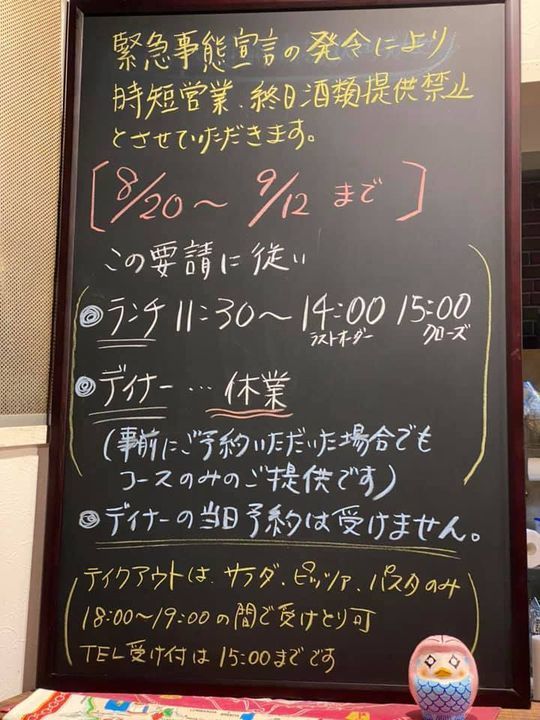 緊急事態宣言の発令により
時短営業、終日酒類提供禁止
とさせていただきます。
[8/20～9/12まで]
この要請に従い
◎ランチ 11:30～14:00 15:00
ラストオーダー クローズ
◎ディナー…休業
(事前にご予約いただいた場合でも
コースのみのご提供です)
◎ディナーの当日予約は受けません。
(テイクアウトは、サラダ、ピッツァ、パスタのみ
18:00～19:00の間で受けとり可
TEL受け付は15:00までです)